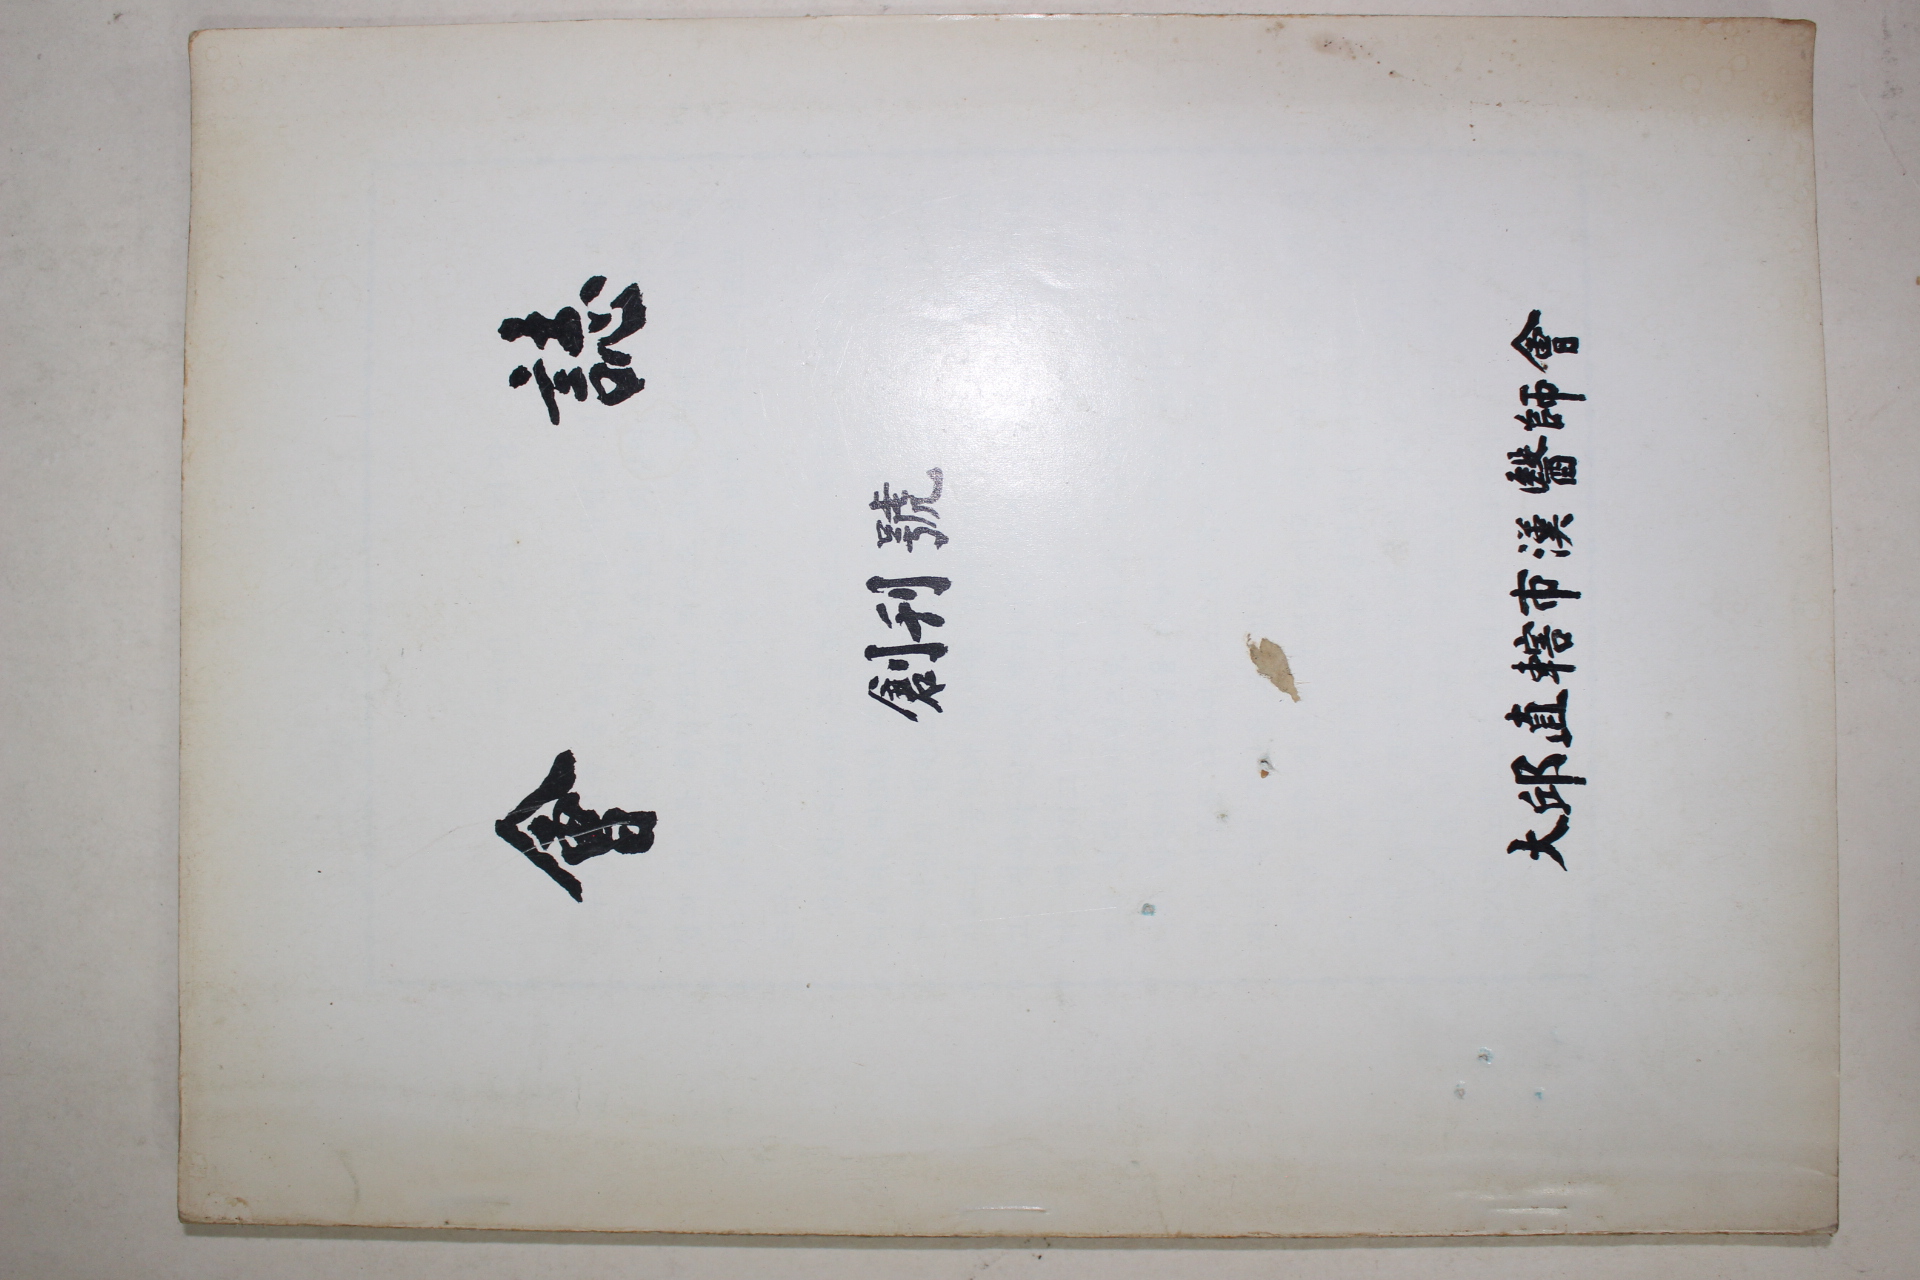 會誌
創刊號
大邱直轄市漢醫師會